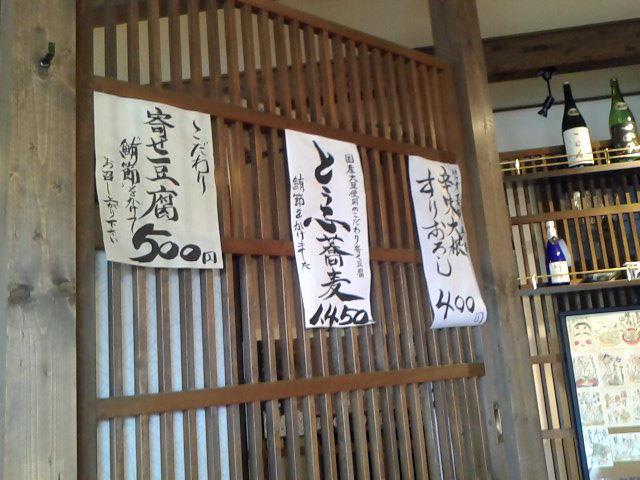 こだわり
寄せ豆腐
鮪節をかけて
お召し上り下さい
500円
国産大豆使用のこだわり寄せ豆腐
とうふ蕎麦
鮪節をかけました
1450
辛味大根
すりおろし
400円